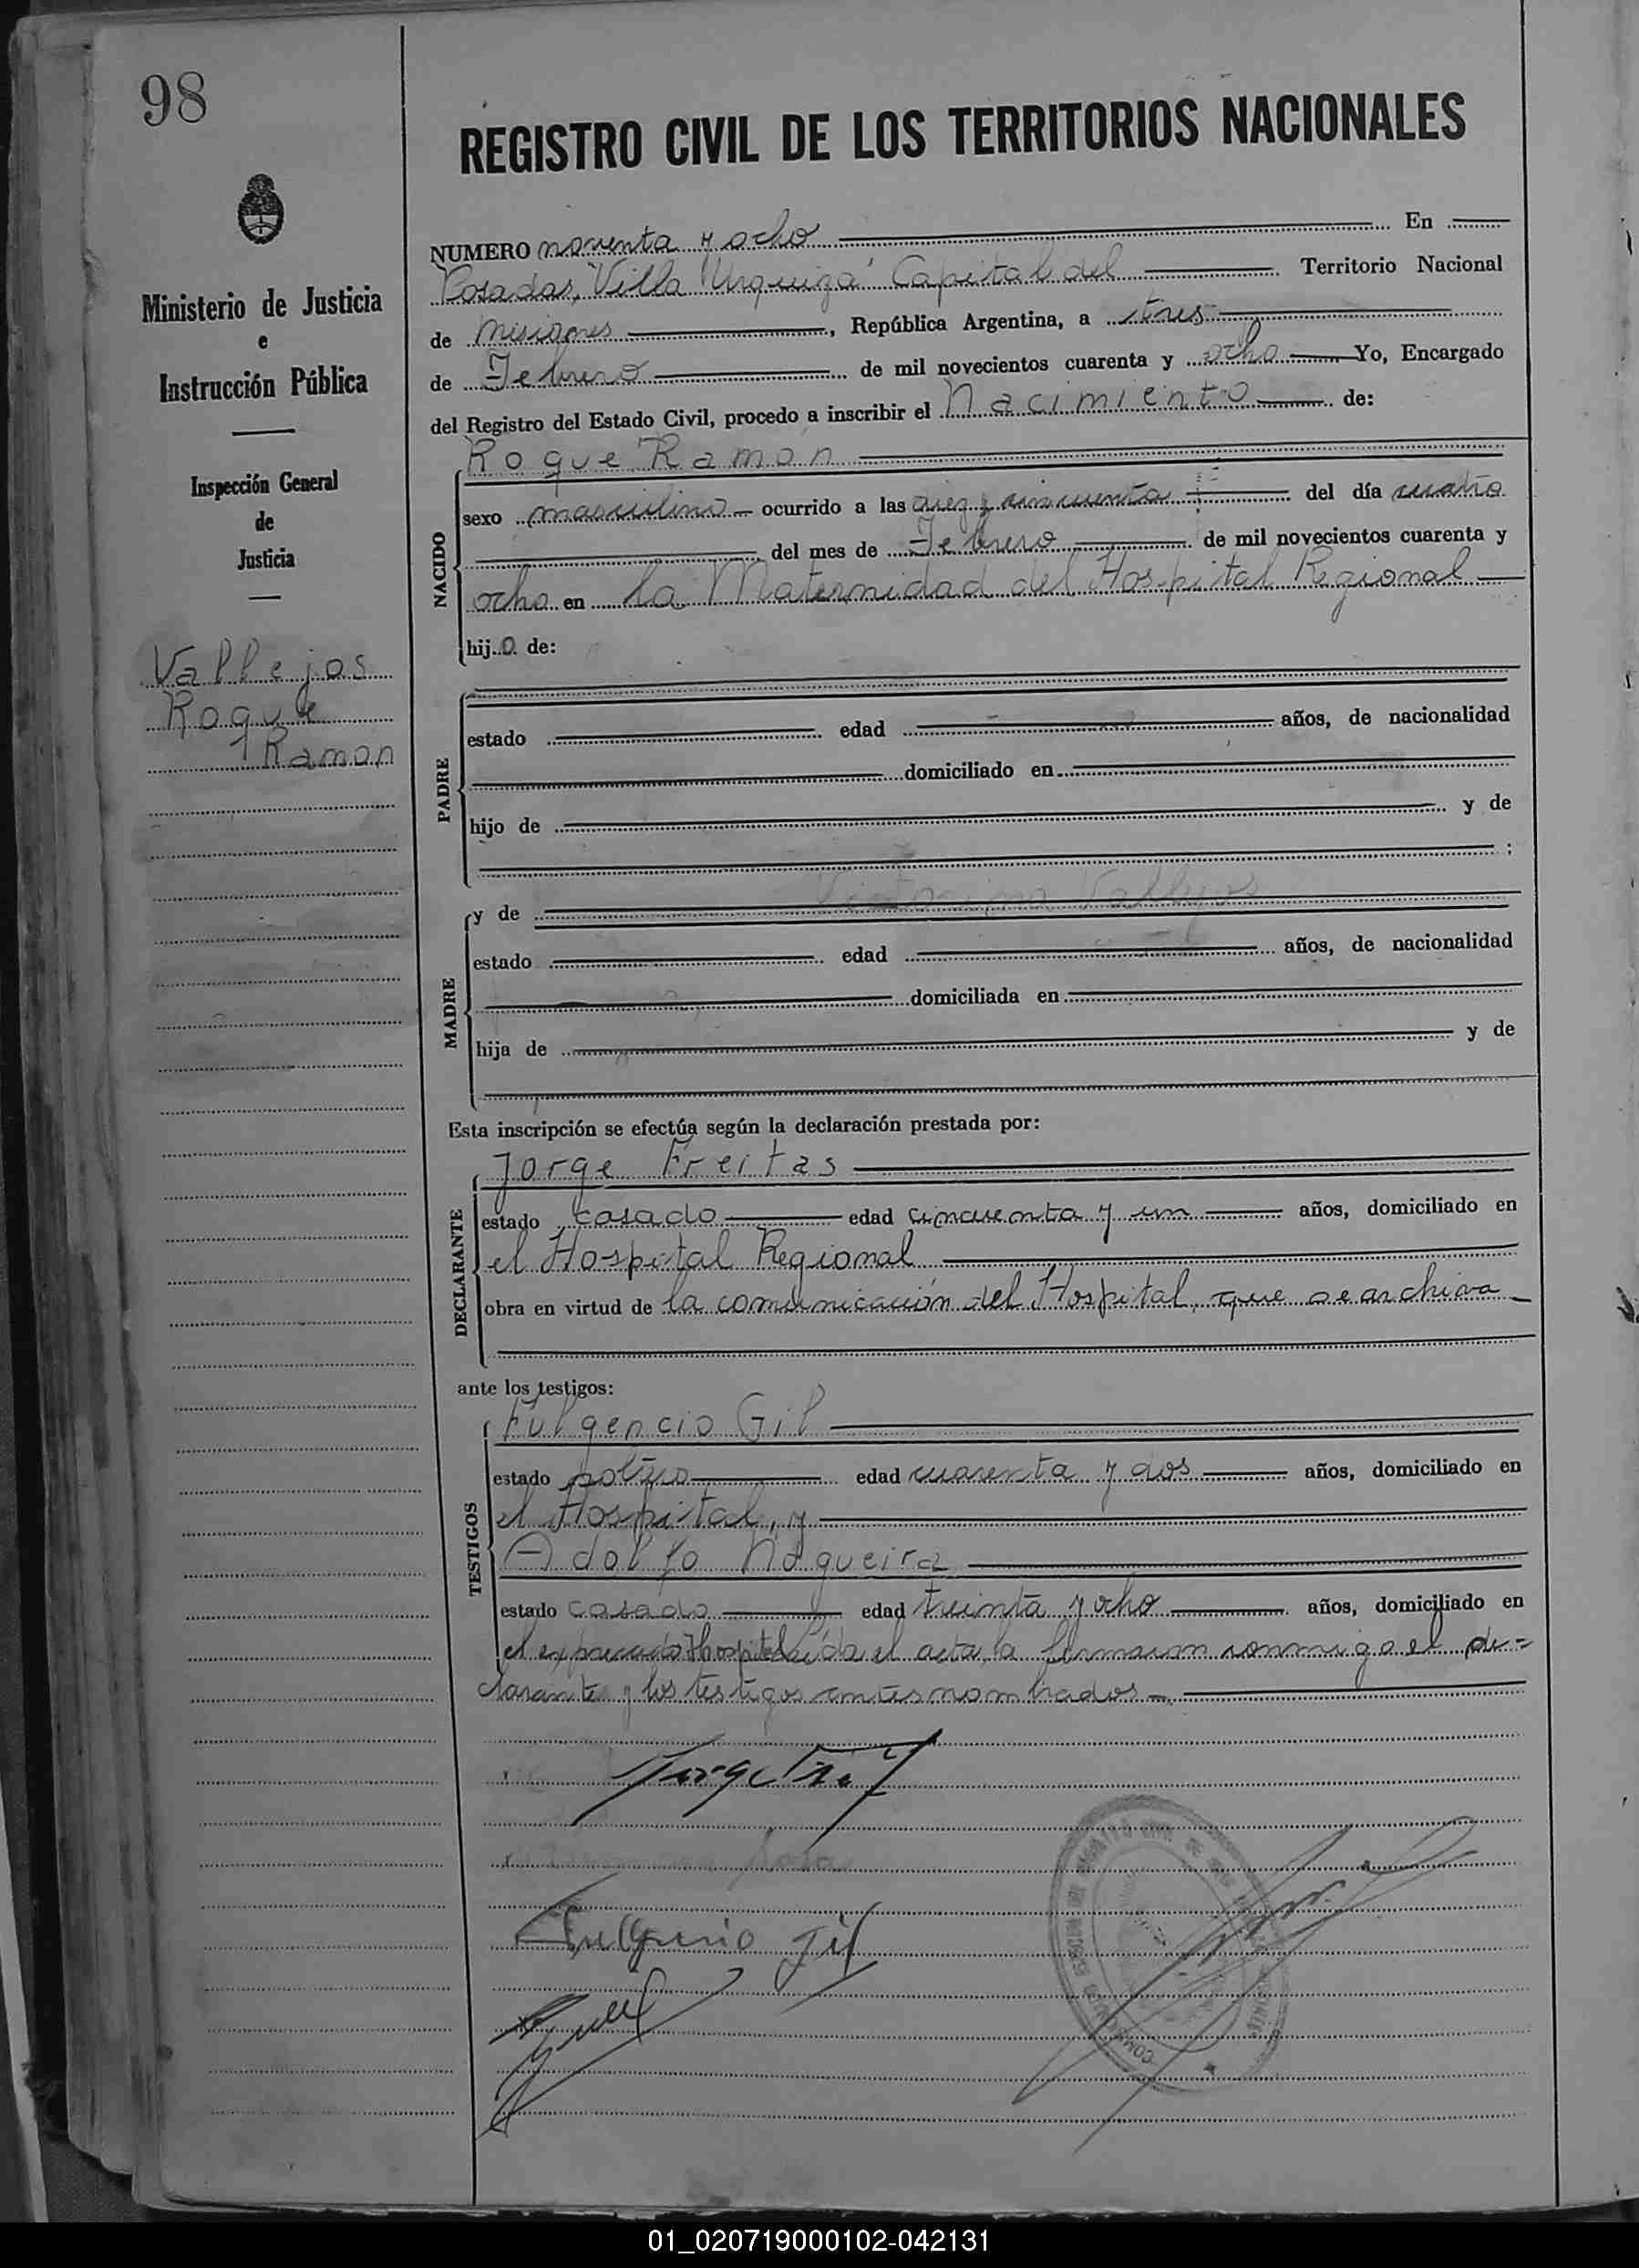 98
REGISTRO CIVIL DE LOS TERRITORIOS NACIONALES
Ministerio de Justicia
e
Instrucción Pública
Inspección General
de
Justicia
Vallejos
Roque
Ramon
NUMERO noventa y ocho En
Posadas, "Villa Urquiza" Capital del Territorio Nacional
de Misiones, República Argentina, a tres
de Febrero de mil novecientos cuarenta y ocho Yo, Encargado
del Registro del Estado Civil, procedo a inscribir el Nacimiento de:
NACIDO
Roque Ramon
sexo masculino ocurrido a las diez y cincuenta del día cuatro
del mes de Febrero de mil novecientos cuarenta y
ocho en la Maternidad del Hospital Regional
hijo de:
PADRE
estado edad años, de nacionalidad
domiciliado en
hijo de y de
;
MADRE
y de Victorina Vallejos
estado edad años, de nacionalidad
domiciliada en
hija de y de
Esta inscripción se efectúa según la declaración prestada por:
DECLARANTE
Jorge Freitas
estado casado edad cincuenta y un años, domiciliado en
el Hospital Regional
obra en virtud de la comunicación del Hospital, que se archiva
ante los testigos:
TESTIGOS
Fulgencio Gil
estado soltero edad cuarenta y dos años, domiciliado en
el Hospital, y
Adolfo Nogueira
estado casado edad treinta y ocho años, domiciliado en
el expresado Hospital Leída el acta, la firmaron conmigo el de=
clarante y los testigos antes nombrados
Fulgencio Gil
01_020719000102-042131